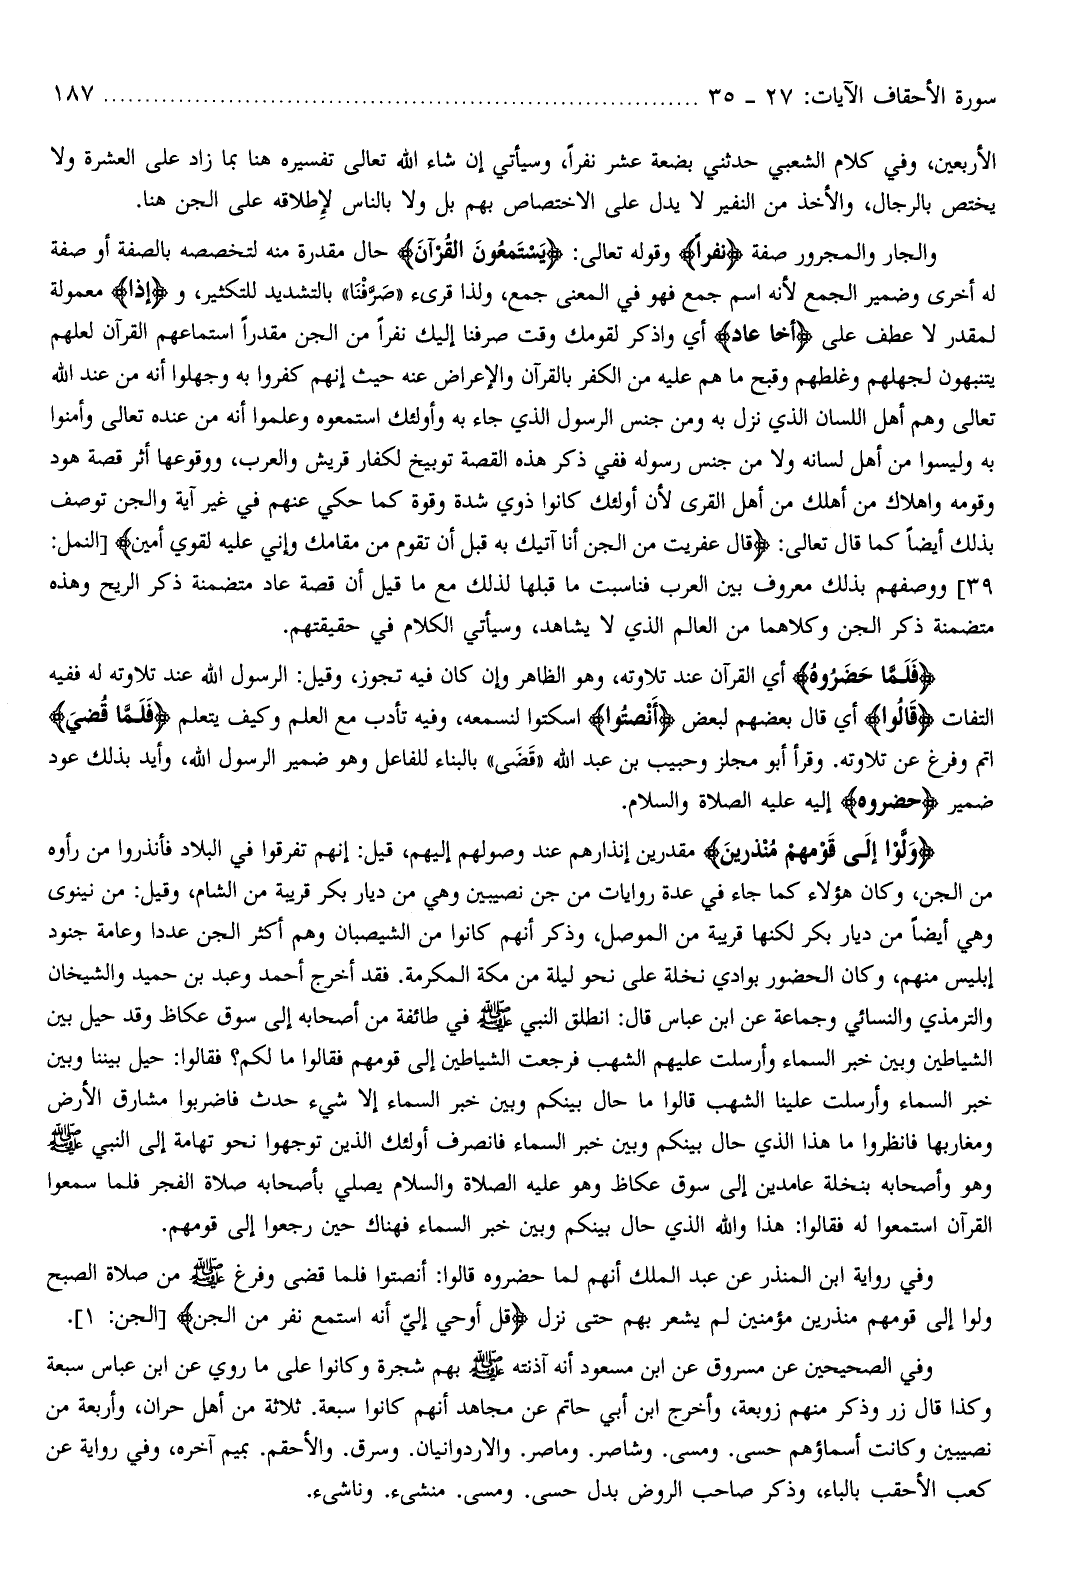 سورة الأحقاف الآيات: ٢٧ ـ ٣٥ ........................................................................ ١٨٧
الأربعين، وفي كلام الشعبي حدثني بضعة عشر نفراً، وسيأتي إن شاء الله تعالى تفسيره هنا بما زاد على العشرة ولا
يختص بالرجال، والأخذ من النفير لا يدل على الاختصاص بهم بل ولا بالناس لإطلاقه على الجن هنا.
والجار والمجرور صفة ﴿نفراً﴾ وقوله تعالى: ﴿يَسْتَمعُونَ القُرْآنَ﴾ حال مقدرة منه لتخصصه بالصفة أو صفة
له أخرى وضمير الجمع لأنه اسم جمع فهو في المعنى جمع، ولذا قرىء «صَرَّفْنَا» بالتشديد للتكثير، و ﴿إذا﴾ معمولة
لمقدر لا عطف على ﴿أخا عاد﴾ أي واذكر لقومك وقت صرفنا إليك نفراً من الجن مقدراً استماعهم القرآن لعلهم
يتنبهون لجهلهم وغلطهم وقبح ما هم عليه من الكفر بالقرآن والإعراض عنه حيث إنهم كفروا به وجهلوا أنه من عند الله
تعالى وهم أهل اللسان الذي نزل به ومن جنس الرسول الذي جاء به وأولئك استمعوه وعلموا أنه من عنده تعالى وأمنوا
به وليسوا من أهل لسانه ولا من جنس رسوله ففي ذكر هذه القصة توبيخ لكفار قريش والعرب، ووقوعها أثر قصة هود
وقومه واهلاك من أهلك من أهل القرى لأن أولئك كانوا ذوي شدة وقوة كما حكي عنهم في غير آية والجن توصف
بذلك أيضاً كما قال تعالى: ﴿قال عفريت من الجن أنا آتيك به قبل أن تقوم من مقامك وإني عليه لقوي أمين﴾ [النمل:
٣٩] ووصفهم بذلك معروف بين العرب فناسبت ما قبلها لذلك مع ما قيل أن قصة عاد متضمنة ذكر الريح وهذه
متضمنة ذكر الجن وكلاهما من العالم الذي لا يشاهد، وسيأتي الكلام في حقيقتهم.
﴿فَلَمَّا حَضَرُوهُ﴾ أي القرآن عند تلاوته، وهو الظاهر وإن كان فيه تجوز، وقيل: الرسول الله عند تلاوته له ففيه
التفات ﴿قَالُوا﴾ أي قال بعضهم لبعض ﴿أَنْصتُوا﴾ اسكتوا لنسمعه، وفيه تأدب مع العلم وكيف يتعلم ﴿فَلَمَّا قُضيَ﴾
اتم وفرغ عن تلاوته. وقرأ أبو مجلز وحبيب بن عبد الله «قَضَى» بالبناء للفاعل وهو ضمير الرسول الله، وأيد بذلك عود
ضمير ﴿حضروه﴾ إليه عليه الصلاة والسلام.
﴿وَلَّوْا إلَى قَوْمهمْ مُنْذرينَ﴾ مقدرين إنذارهم عند وصولهم إليهم، قيل: إنهم تفرقوا في البلاد فأنذروا من رأوه
من الجن، وكان هؤلاء كما جاء في عدة روايات من جن نصيبين وهي من ديار بكر قريبة من الشام، وقيل: من نينوى
وهي أيضاً من ديار بكر لكنها قريبة من الموصل، وذكر أنهم كانوا من الشيصبان وهم أكثر الجن عددا وعامة جنود
إبليس منهم، وكان الحضور بوادي نخلة على نحو ليلة من مكة المكرمة. فقد أخرج أحمد وعبد بن حميد والشيخان
والترمذي والنسائي وجماعة عن ابن عباس قال: انطلق النبي ﷺ في طائفة من أصحابه إلى سوق عكاظ وقد حيل بين
الشياطين وبين خبر السماء وأرسلت عليهم الشهب فرجعت الشياطين إلى قومهم فقالوا ما لكم؟ فقالوا: حيل بيننا وبين
خبر السماء وأرسلت علينا الشهب قالوا ما حال بينكم وبين خبر السماء إلا شيء حدث فاضربوا مشارق الأرض
ومغاربها فانظروا ما هذا الذي حال بينكم وبين خبر السماء فانصرف أولئك الذين توجهوا نحو تهامة إلى النبي ﷺ
وهو وأصحابه بنخلة عامدين إلى سوق عكاظ وهو عليه الصلاة والسلام يصلي بأصحابه صلاة الفجر فلما سمعوا
القرآن استمعوا له فقالوا: هذا والله الذي حال بينكم وبين خبر السماء فهناك حين رجعوا إلى قومهم.
وفي رواية ابن المنذر عن عبد الملك أنهم لما حضروه قالوا: أنصتوا فلما قضى وفرغ ﷺ من صلاة الصبح
ولوا إلى قومهم منذرين مؤمنين لم يشعر بهم حتى نزل ﴿قل أوحي إليّ أنه استمع نفر من الجن﴾ [الجن: ١].
وفي الصحيحين عن مسروق عن ابن مسعود أنه آذنته ﷺ بهم شجرة وكانوا على ما روي عن ابن عباس سبعة
وكذا قال زر وذكر منهم زوبعة، وأخرج ابن أبي حاتم عن مجاهد أنهم كانوا سبعة. ثلاثة من أهل حران، وأربعة من
نصيبين وكانت أسماؤهم حسى. ومسى. وشاصر. وماصر. والاردوانيان. وسرق. والأحقم. بميم آخره، وفي رواية عن
كعب الأحقب بالباء، وذكر صاحب الروض بدل حسى. ومسى. منشىء. وناشىء.